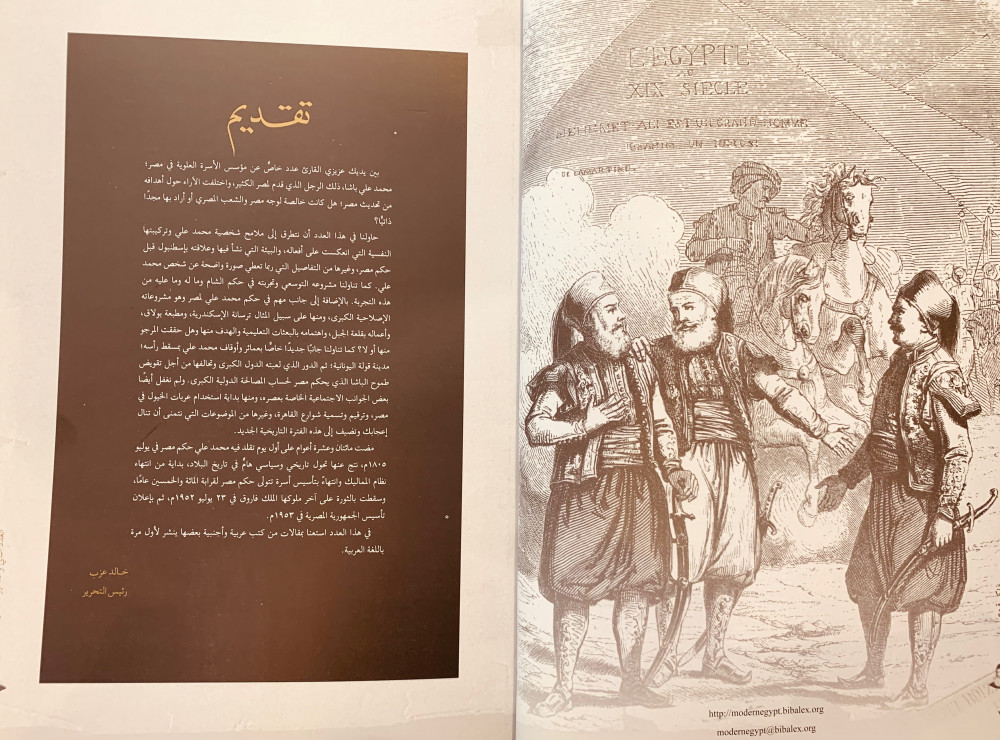 تقديم
بين يديك عزيزي القارئ عدد خاصٌّ عن مؤسس الأسرة العلوية في مصر؛
محمد علي باشا، ذلك الرجل الذي قدم لمصر الكثير، واختلفت الآراء حول أهدافه
من تحديث مصر؛ هل كانت خالصة لوجه مصر والشعب المصري أو أراد بها مجدًا
ذاتيًّا؟
حاولنا في هذا العدد أن نتطرق إلى ملامح شخصية محمد علي وتركيبتها
النفسية التي انعكست على أفعاله، والبيئة التي نشأ فيها وعلاقته بإسطنبول قبل
حكم مصر، وغيرها من التفاصيل التي ربما تعطي صورة واضحة عن شخص محمد
علي. كما تناولنا مشروعه التوسعي وتجربته في حكم الشام وما له وما عليه من
هذه التجربة. بالإضافة إلى جانب مهم في حكم محمد علي لمصر وهو مشروعاته
الإصلاحية الكبرى، ومنها على سبيل المثال ترسانة الإسكندرية، ومطبعة بولاق،
وأعماله بقلعة الجبل، واهتمامه بالبعثات التعليمية والهدف منها وهل حققت المرجو
منها أو لا؟ كما تناولنا جانبًا جديدًا خاصًّا بعمائر وأوقاف محمد علي بمسقط رأسه؛
مدينة قولة اليونانية؛ ثم الدور الذي لعبته الدول الكبرى وتحالفها من أجل تقويض
طموح الباشا الذي يحكم مصر لحساب المصالحة الدولية الكبرى. ولم نغفل أيضًا
بعض الجوانب الاجتماعية الخاصة بعصره، ومنها بداية استخدام عربات الخيول في
مصر، وترقيم وتسمية شوارع القاهرة، وغيرها من الموضوعات التي نتمنى أن تنال
إعجابك وتضيف إلى هذه الفترة التاريخية الجديد.
مضت مائتان وعشرة أعوام على أول يوم تقلد فيه محمد علي حكم مصر في يوليو
١٨٠٥م، نتج عنها تحول تاريخي وسياسي هامٌّ في تاريخ البلاد، بداية من انتهاء
نظام المماليك وانتهاءً بتأسيس أسرة تتولى حكم مصر لقرابة المائة والخمسين عامًا،
وسقطت بالثورة على آخر ملوكها الملك فاروق في ٢٣ يوليو ١٩٥٢م، ثم بإعلان
تأسيس الجمهورية المصرية في ١٩٥٣م.
في هذا العدد استعنا بمقالات من كتب عربية وأجنبية بعضها ينشر لأول مرة
باللغة العربية.
خالد عزب
رئيس التحرير
L'EGYPTE
XIX SIÈCLE
MEHEMET ALI EST UN GRAND HOMME
DE LAMARTINE.
http://modernegypt.bibalex.org
modernegypt@bibalex.org